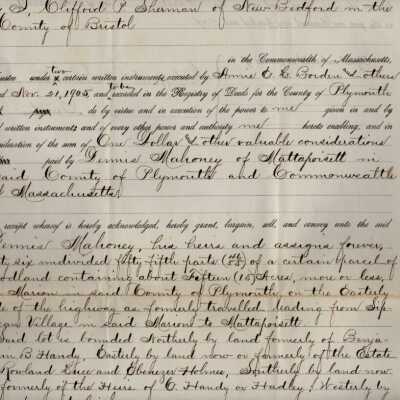 I, Clifford P. Sherman of New Bedford in the
County of Bristol
in the Commonwealth of Massachusetts,
under two certain written instruments executed by Annie E. C. Borden & others
Nov. 21, 1905 and to be recorded in the Registry of Deeds for the County of Plymouth
do by virtue and in execution of the power to me given in and by
written instruments and of every other power and authority me hereto enabling, and in
consideration of the sum of One Dollar & other valuable considerations
paid by Dennis Mahoney of Mattapoisett in
said County of Plymouth and Commonwealth
of Massachusetts,
receipt whereof is hereby acknowledged, hereby grant, bargain, sell, and convey unto the said
Dennis Mahoney, his heirs and assigns forever,
ty six undivided fifty fifth parts of a certain parcel of
woodland containing about Fifteen (15) Acres, more or less,
in Marion in said County of Plymouth, on the Easterly
of the highway as formerly travelled leading from Sip-
can Village in said Marion to Mattapoisett.
Said lot is bounded Northerly by land formerly of Benja-
min B Handy, Easterly by land now or formerly of the Estate
Rowland Luce and Ebenezer Holmes, Southerly by land now
formerly of the Heirs of C. Handy or Hadley; Westerly by